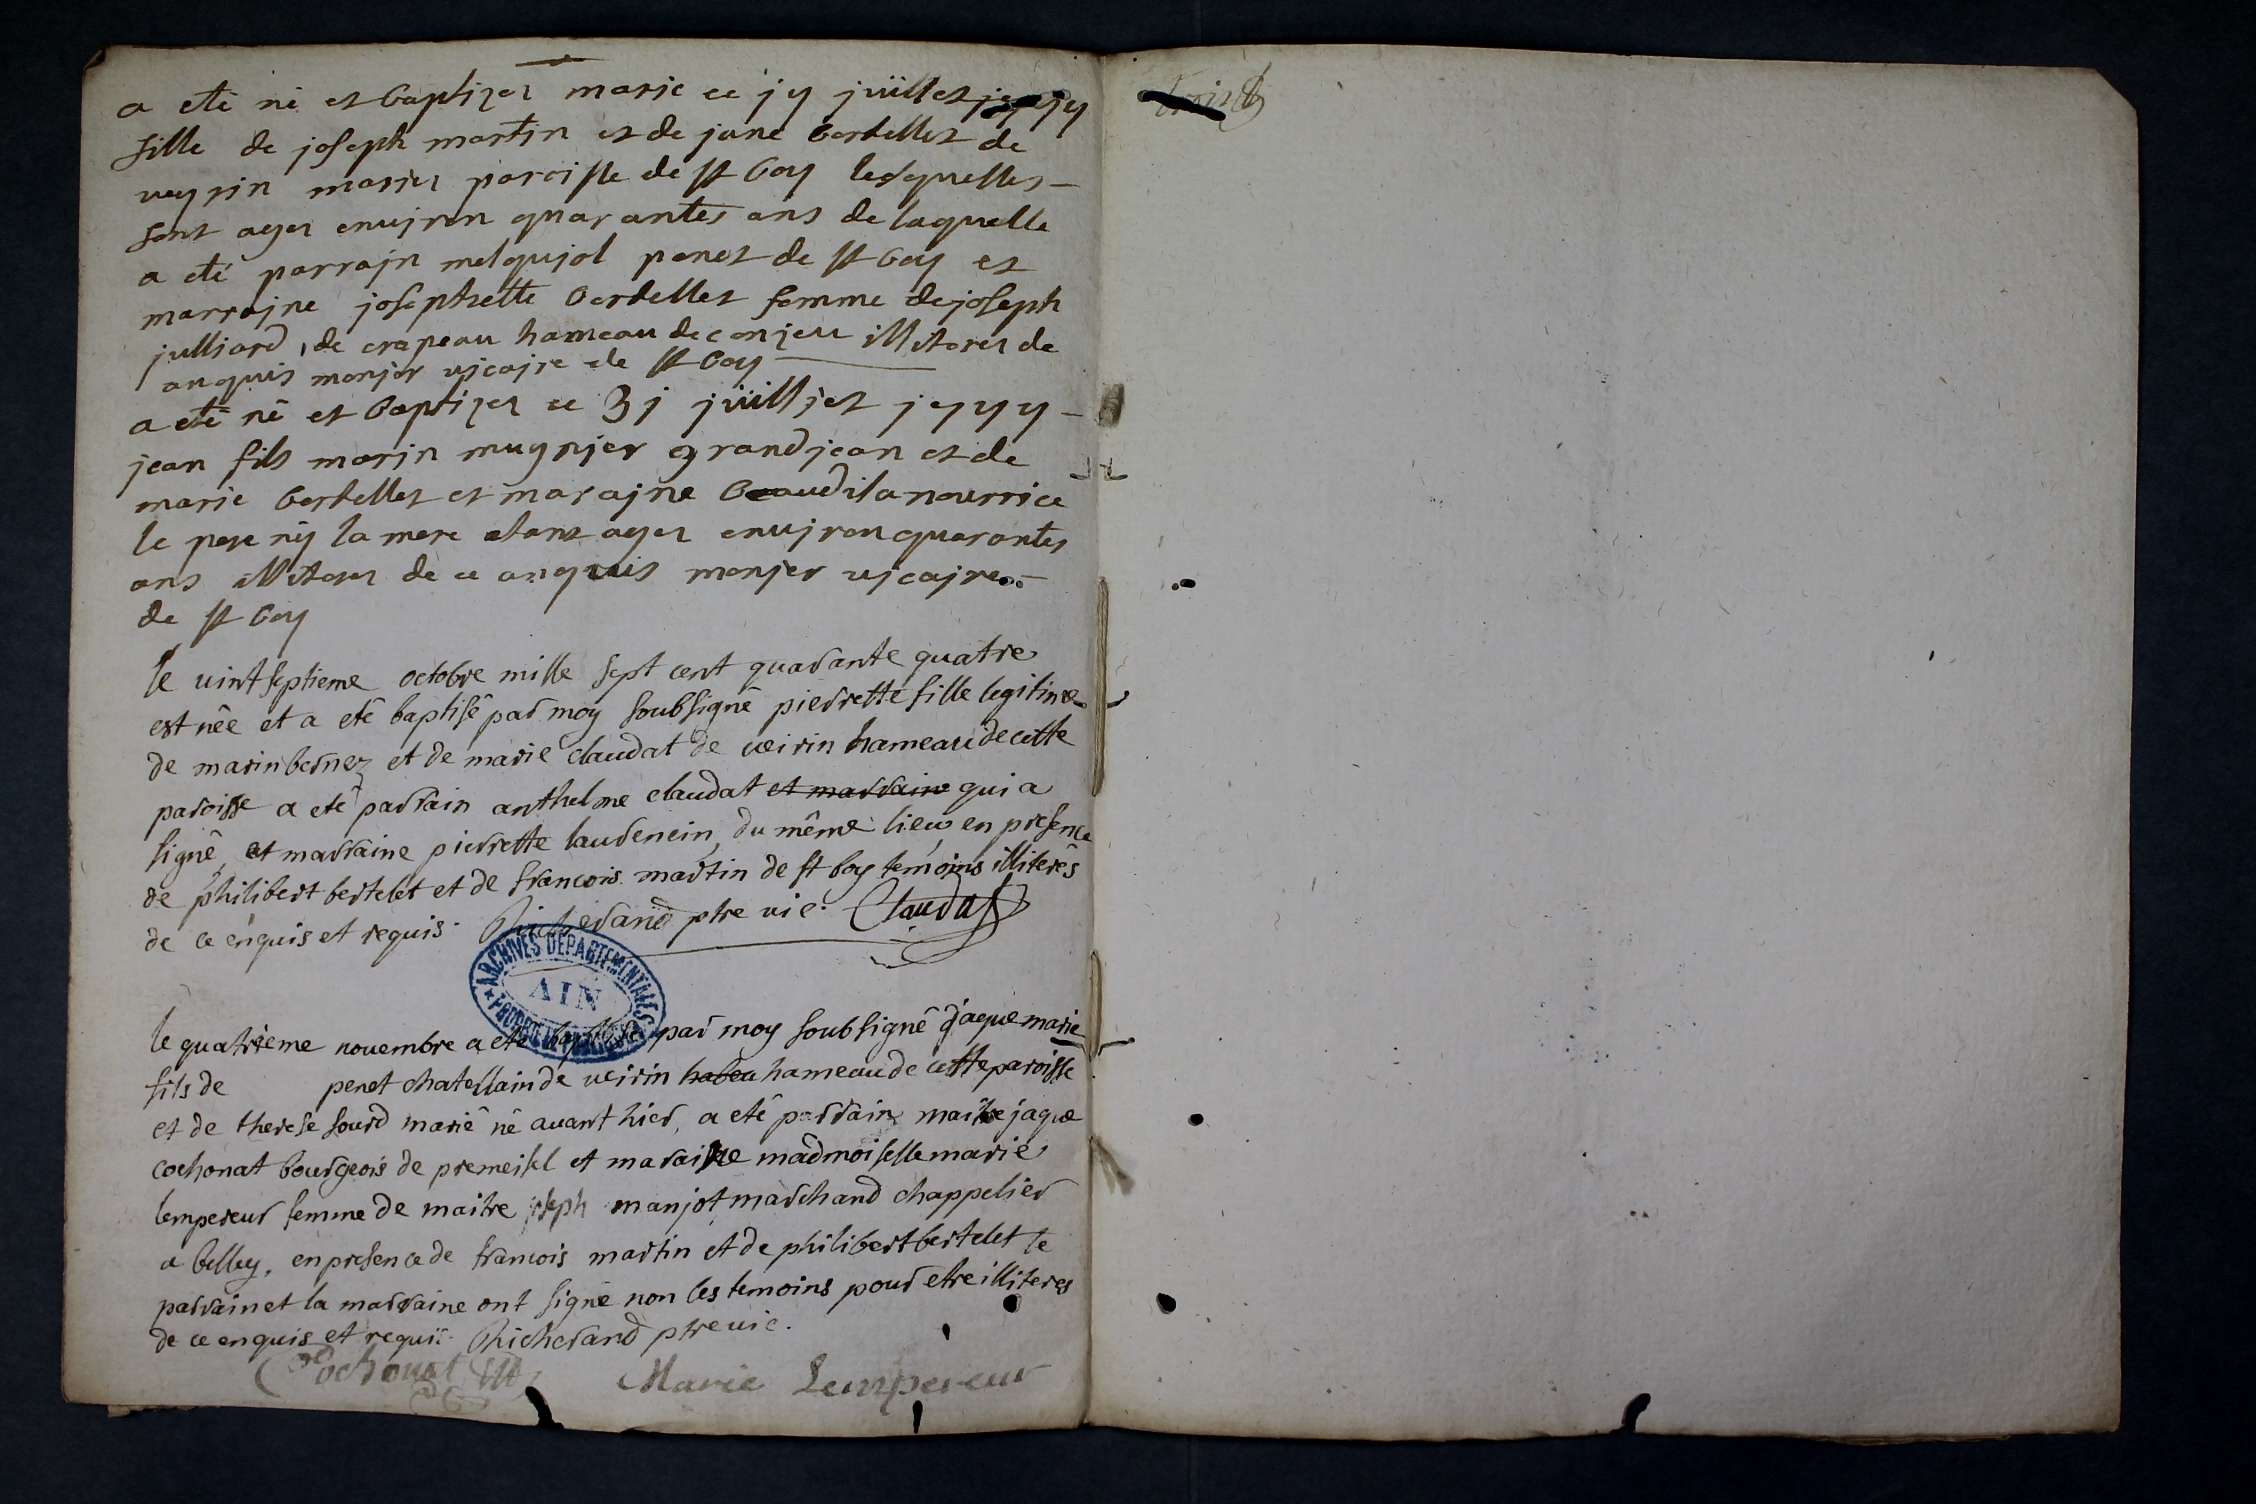 a eté né et baptizez marie ce jy jüillet
fille de joseph martin et de jane bertellet de
veyrin mariez paroisse de st boy lesquelles
sont agez envjron quarantes ans de laquelle
a eté parrajn melqujol penet de st boy et
marrajne josephtette bertellet femme de joseph
julliard, de crapeau hameau de conjeu illiterez de
anquis monjer vjcajre de st boy
a eté né et baptizez ce 3j jüilljet jyyy
jean fils marjn mugnjer grandjean et de
marie bertellet et marajne la nourrice
le pere ny la mere etant agez envjron quarantes
ans illiterez de ce anquis monjer vjcajre
de st boy
le vint septieme octobre mille sept cent quarante quatre
est née et a eté baptisé par moy soubsigné pierrette fille legitime
de marin bernez et de marie claudat de veirin hameau de cette
paroisse a eté parrain anthelme claudat et marraine qui a
signé, et marraine pierrette laurencin, du même lieu, en presence
de philibert bertelet et de francois martin de st boy temoins illiterés
de ce enquis et requis. Richerand ptre vic. Claudat
ARCHIVES DEPARTEMENTALES
AIN
le quatrieme novembre a eté baptisé par moy soubsigné jaque marie
fils de penet chatellain de veirin hameau de cette paroisse
et de therese sourd marié né avant hier, a eté parrain maitre jaque
cochonat bourgeois de premeisel et maraine madmoiselle marie
lempereur femme de maitre joseph manjot marchand chappelier
a belley, en presence de francois martin et de philibert bertelet le
parrain et la marraine ont signé non les temoins pour etre illiteres
de ce enquis et requi. Richerand ptre vic.
Cochonat Marie Lempereur